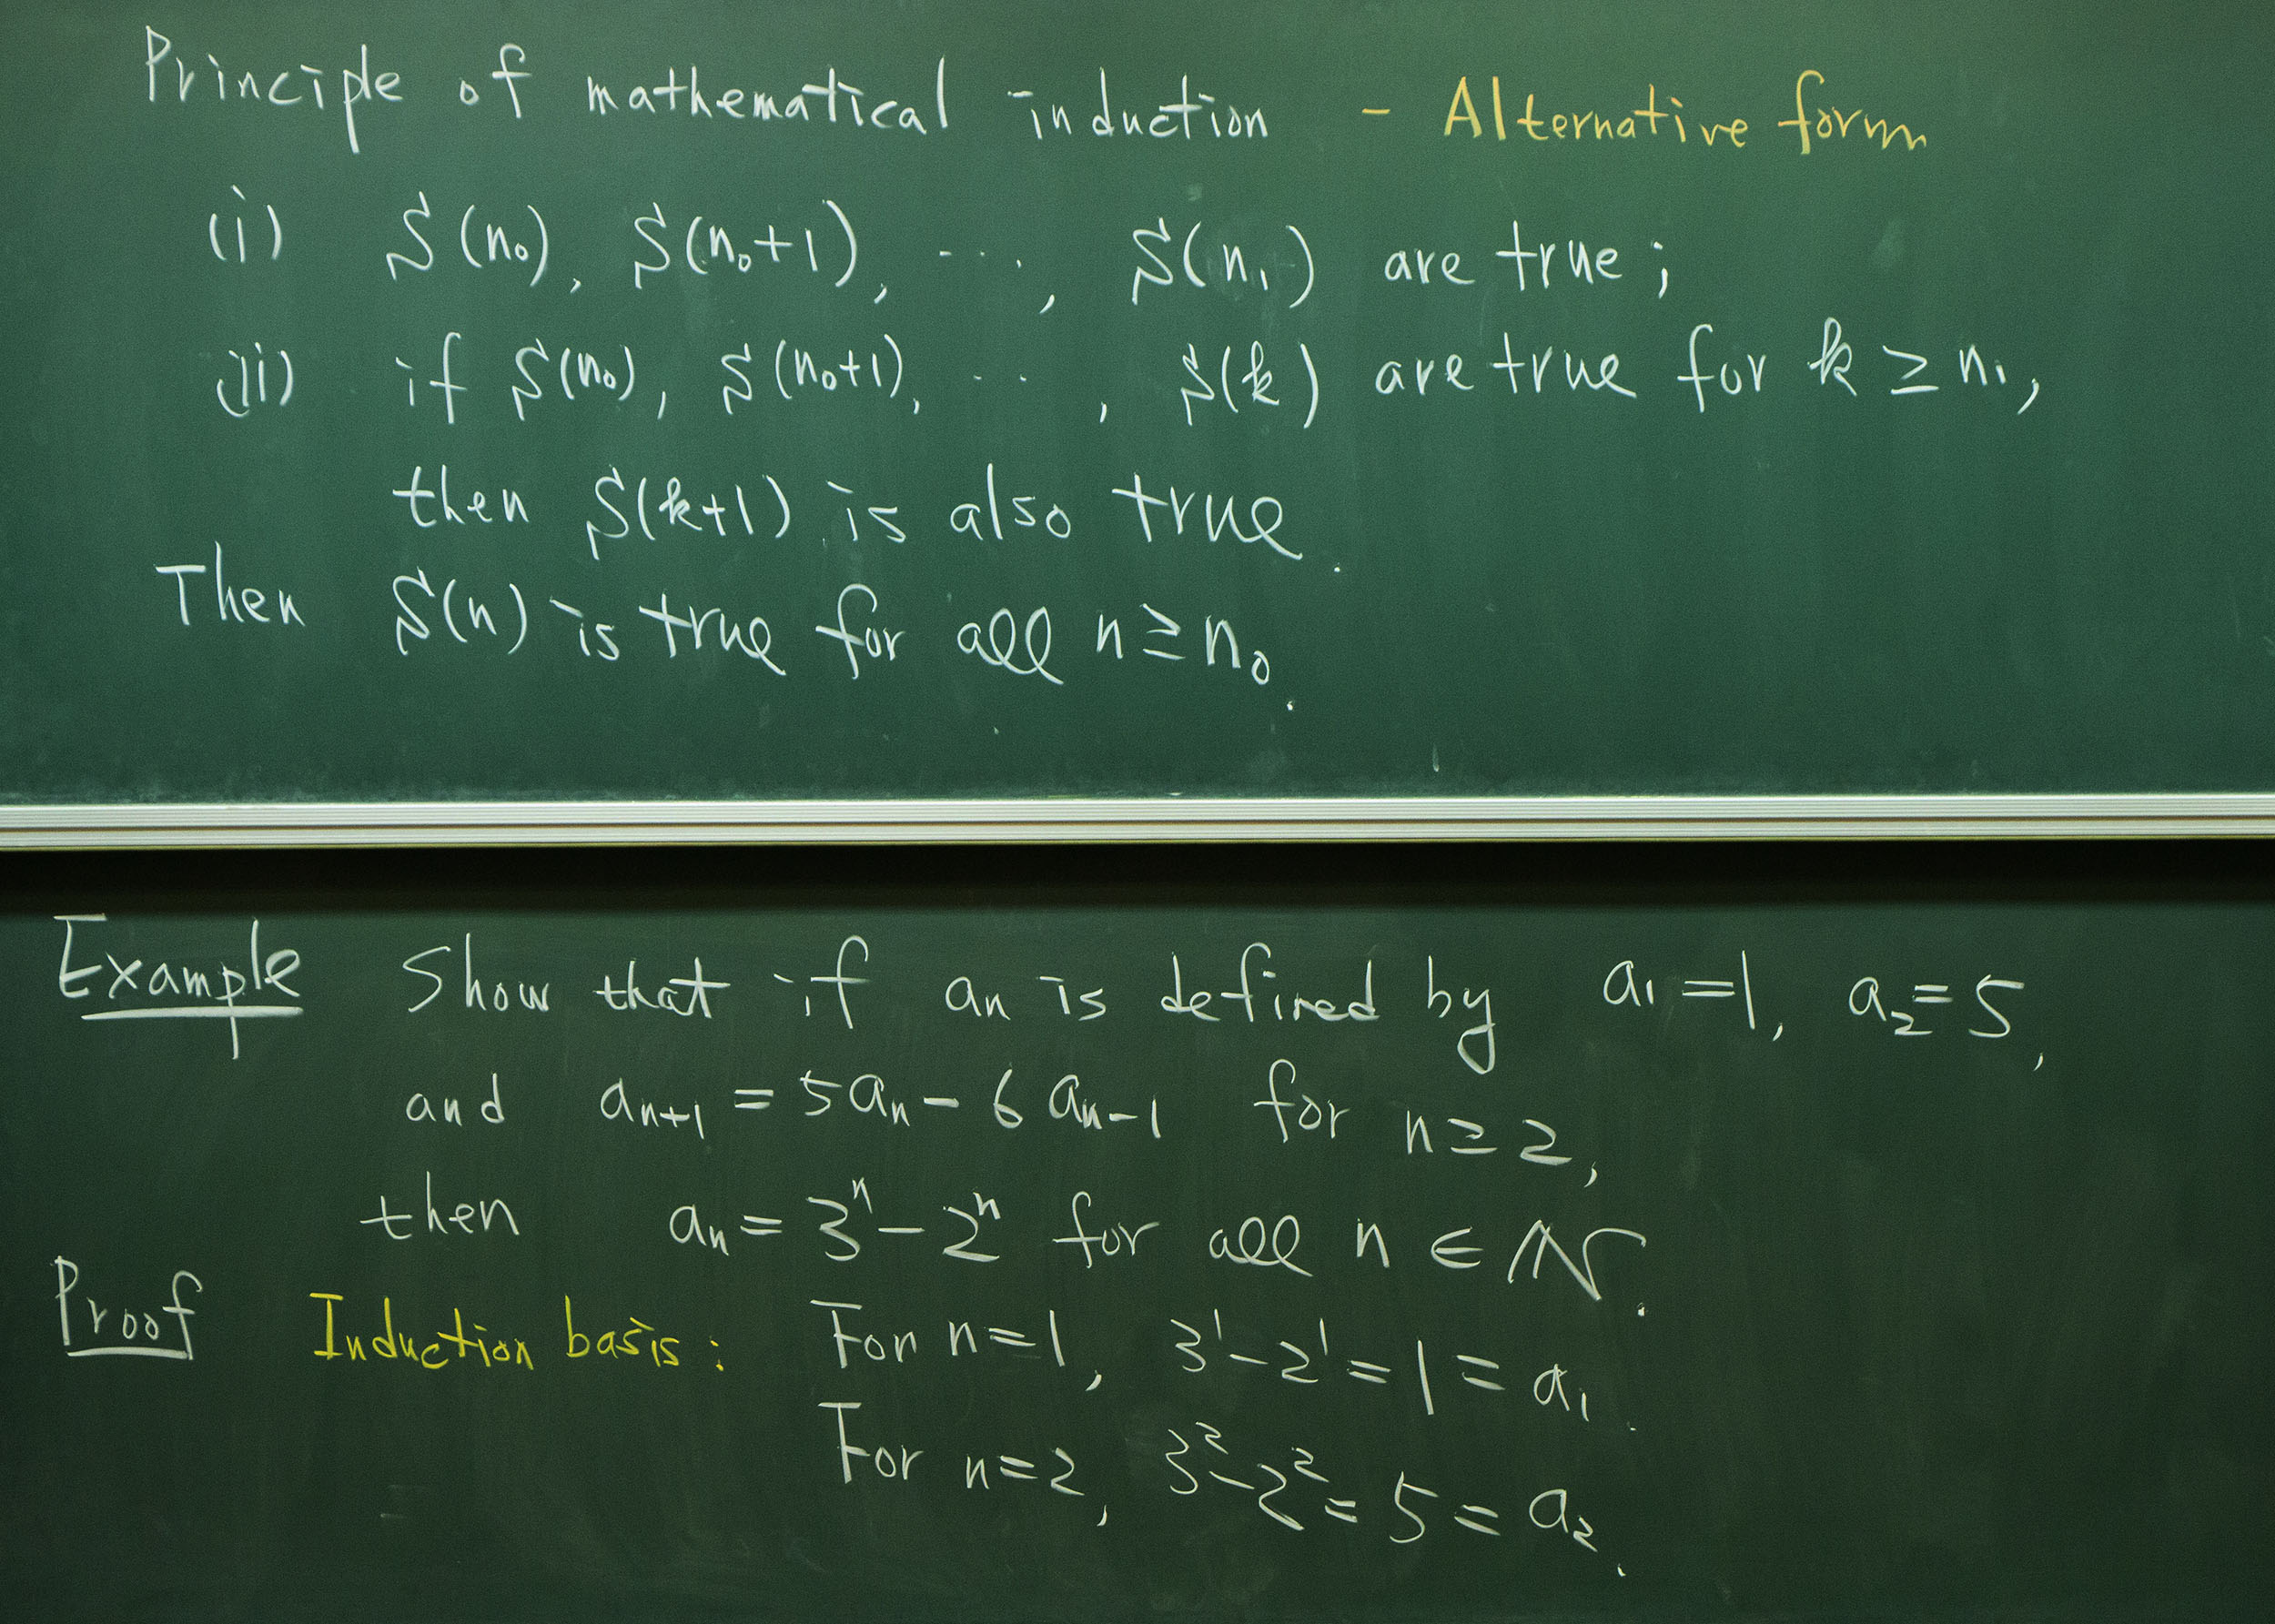 Principle of mathematical induction - Alternative form
(i) S(n₀), S(n₀+1), ..., S(n₁) are true;
(ii) if S(n₀), S(n₀+1), ..., S(k) are true for k ≥ n₁,
then S(k+1) is also true.
Then S(n) is true for all n ≥ n₀.
Example Show that if aₙ is defined by a₁ = 1, a₂ = 5,
and aₙ₊₁ = 5aₙ - 6aₙ₋₁ for n ≥ 2,
then aₙ = 3ⁿ - 2ⁿ for all n ∈ ℕ.
Proof Induction basis: For n=1, 3¹ - 2¹ = 1 = a₁.
For n=2, 3² - 2² = 5 = a₂.